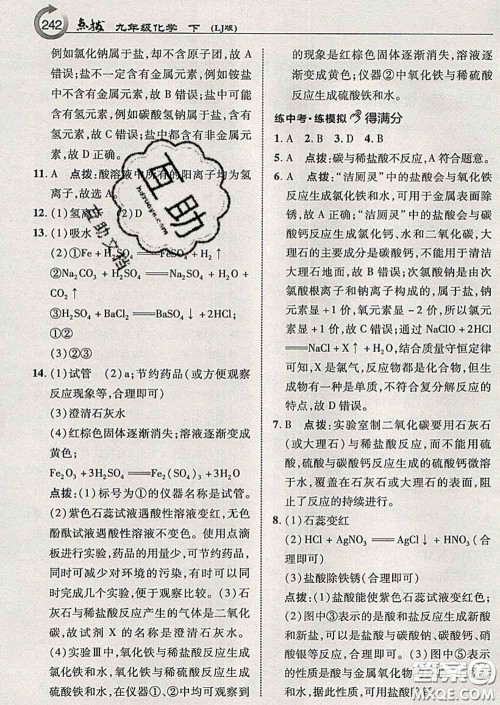 242 点拨 九年级化学 下 (LJ版)
例如氯化钠属于盐,却不含原子团,故 A
错误;盐中一定含有金属元素,例如铵盐
中不含金属元素,故 B 错误;盐中
元素,例如碳酸氢钠属于盐,
元素,故 C 错误;盐中都含有非金属元
素,故 D 正确。
11. A 点拨:酸溶液中所有的阳离子均为氢
离子,故选 A。
12. (1)氢离 (2)D
13. (1)吸水
(2)①Fe + H₂SO₄ FeSO₄ + H₂↑
②Na₂CO₃ + H₂SO₄ ══ Na₂SO₄ + H₂O +
CO₂↑
③H₂SO₄ + BaCl₂ ══ BaSO₄↓ + 2HCl;
①②
(3)②③
14. (1)试管 (2)a;节约药品(或方便观察
反应现象等,合理即可)
(3)澄清石灰水
(4)红棕色固体逐渐消失,溶液逐渐变成
黄色;
Fe₂O₃ + 3H₂SO₄ ══ Fe₂(SO₄)₃ + 3H₂O
点拨:(1)标号为①的仪器名称是试管。
(2)紫色石蕊试液遇酸性溶液变红,无色
酚酞试液遇酸性溶液不变色。使用点滴
板进行实验,药品的用量少,节约药品,
同时可减少对环境的污染,有时几个实
验同时完成,便于观察比较。(3)石
灰石与稀盐酸反应产生的气体是二氧化
碳,故试剂 X 的名称是澄清石灰水。
(4)实验Ⅲ中,氧化铁与稀盐酸反应生成
氯化铁和水,氧化铁与稀硫酸反应生成
硫酸铁和水,在仪器①中可以观察到
的现象是:红棕色固体逐渐消失,溶液逐
渐变成黄色;仪器②中氧化铁与稀硫酸
反应生成硫酸铁和水。
练中考·练模拟 得满分
1. A 2. B 3. D 4. B
5. A 点拨:碳与稀盐酸不反应,A 符合题意。
6. A 点拨:“洁厕灵”中的盐酸会与氧化铁
反应生成氯化铁和水,可用于金属表面除
锈,故 A 正确;“洁厕灵”中的盐酸会与碳
酸钙反应生成氯化钙、水和二氧化碳,大
理石的主要成分是碳酸钙,不能用于清洁
大理石地面,故 B 错误;次氯酸钠是由次
氯酸根离子和钠离子构成的,属于盐,钠
元素显 +1 价,氧元素显 -2 价,则氯元素
显 +1 价,故 C 错误;通过 NaClO + 2HCl
══NaCl + X↑ + H₂O,结合质量守恒定律
可知,X 是氯气,反应物为两种化合物,生成
物有一种是单质,不符合复分解反应的
特点,故 D 错误。
7. B 点拨:实验室制二氧化碳要用石灰石
(或大理石)与稀盐酸反应,而不能用硫
酸,硫酸与碳酸钙反应生成的硫酸钙微溶
于水,覆盖在石灰石或大理石的表面,阻
止反应的持续进行。
8. (1)石蕊变红
(2)HCl + AgNO₃══AgCl↓ + HNO₃
(3)盐酸除铁锈(合理即可)
点拨:(1)盐酸能使紫色石蕊试液变红色。
(2)图中③表示的是酸和盐反应生成新酸
和新盐,可以是盐酸与碳酸钠、碳酸钙、硝
酸银等反应,合理即可。(3)图中⑤表示
的性质是酸与金属氧化物反应生成盐和
水,据此性质,可利用盐酸除铁锈
互助
互助文档